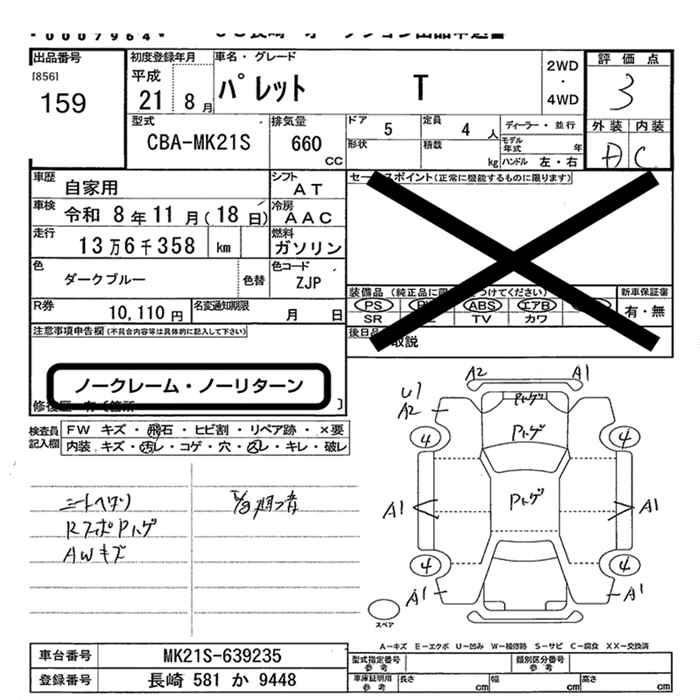 出品番号
[856]
159
初度登録年月
平成
21 8月
車名・グレード
パレット T
2WD
・
4WD
評価点
3
外装 内装
C
型式
CBA-MK21S
排気量
660
CC
ドア
5
定員
4 人
形状
積載
kg
ディーラー・並行
モデル
年式
年
ハンドル 左・右
車歴
自家用
シフト
AT
車検
令和 8年11月(18日)
冷房
AAC
走行
13万6千358 km
燃料
ガソリン
色
ダークブルー
色替
色コード
ZJP
R券
10,110円
名変通知期限
月 日
セールスポイント(正常に機能するものに限ります)
装備品 (純正品に限
つけてください)
PS
ABS
エアB
SR
TV
カワ
新車保証書
有・無
後日品
取説
注意事項申告欄(不具合内容等は具体的に記入して下さい)
ノークレーム・ノーリターン
検査員
記入欄
FW キズ・飛石・ヒビ割・リペア跡・×要
内装 キズ・汚レ・コゲ・穴・スレ・キレ・破レ
シートヘタリ
RスポPトゲ
AWキズ
A2 A1
U1
A2
Pトゲ
Pトゲ
Pトゲ
4 4
A1 A1
4 4
A1 A1
スペア
A−キズ E−エクボ U−凹み W−補修跡 S−サビ C−腐食 XX−交換済
車台番号
MK21S-639235
登録番号
長崎 581 か 9448
型式指定番号
参考
類別区分番号
参考
車庫証明用
参考
長さ
cm
幅
cm
高さ
cm